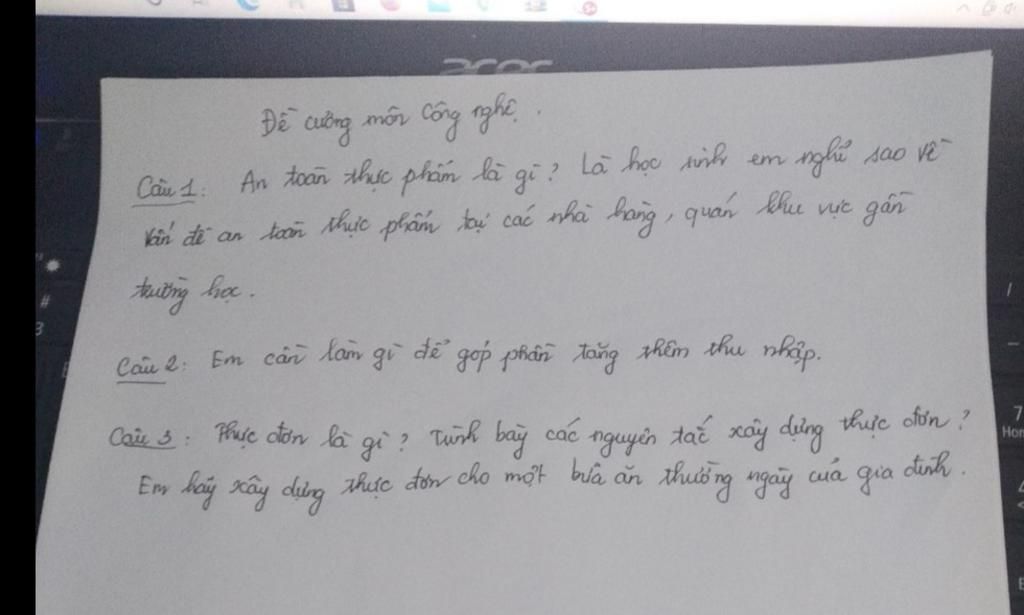 acer
Đề cương môn Công nghệ.
Câu 1: An toàn thực phẩm là gì? Là học sinh em nghĩ sao về
vấn đề an toàn thực phẩm tại các nhà hàng, quán khu vực gần
trường học.
Câu 2: Em cần làm gì để góp phần tăng thêm thu nhập.
Câu 3: Thực đơn là gì? Trình bày các nguyên tắc xây dựng thực đơn?
Em hãy xây dựng thực đơn cho một bữa ăn thường ngày của gia đình.
#
3
7
Hom